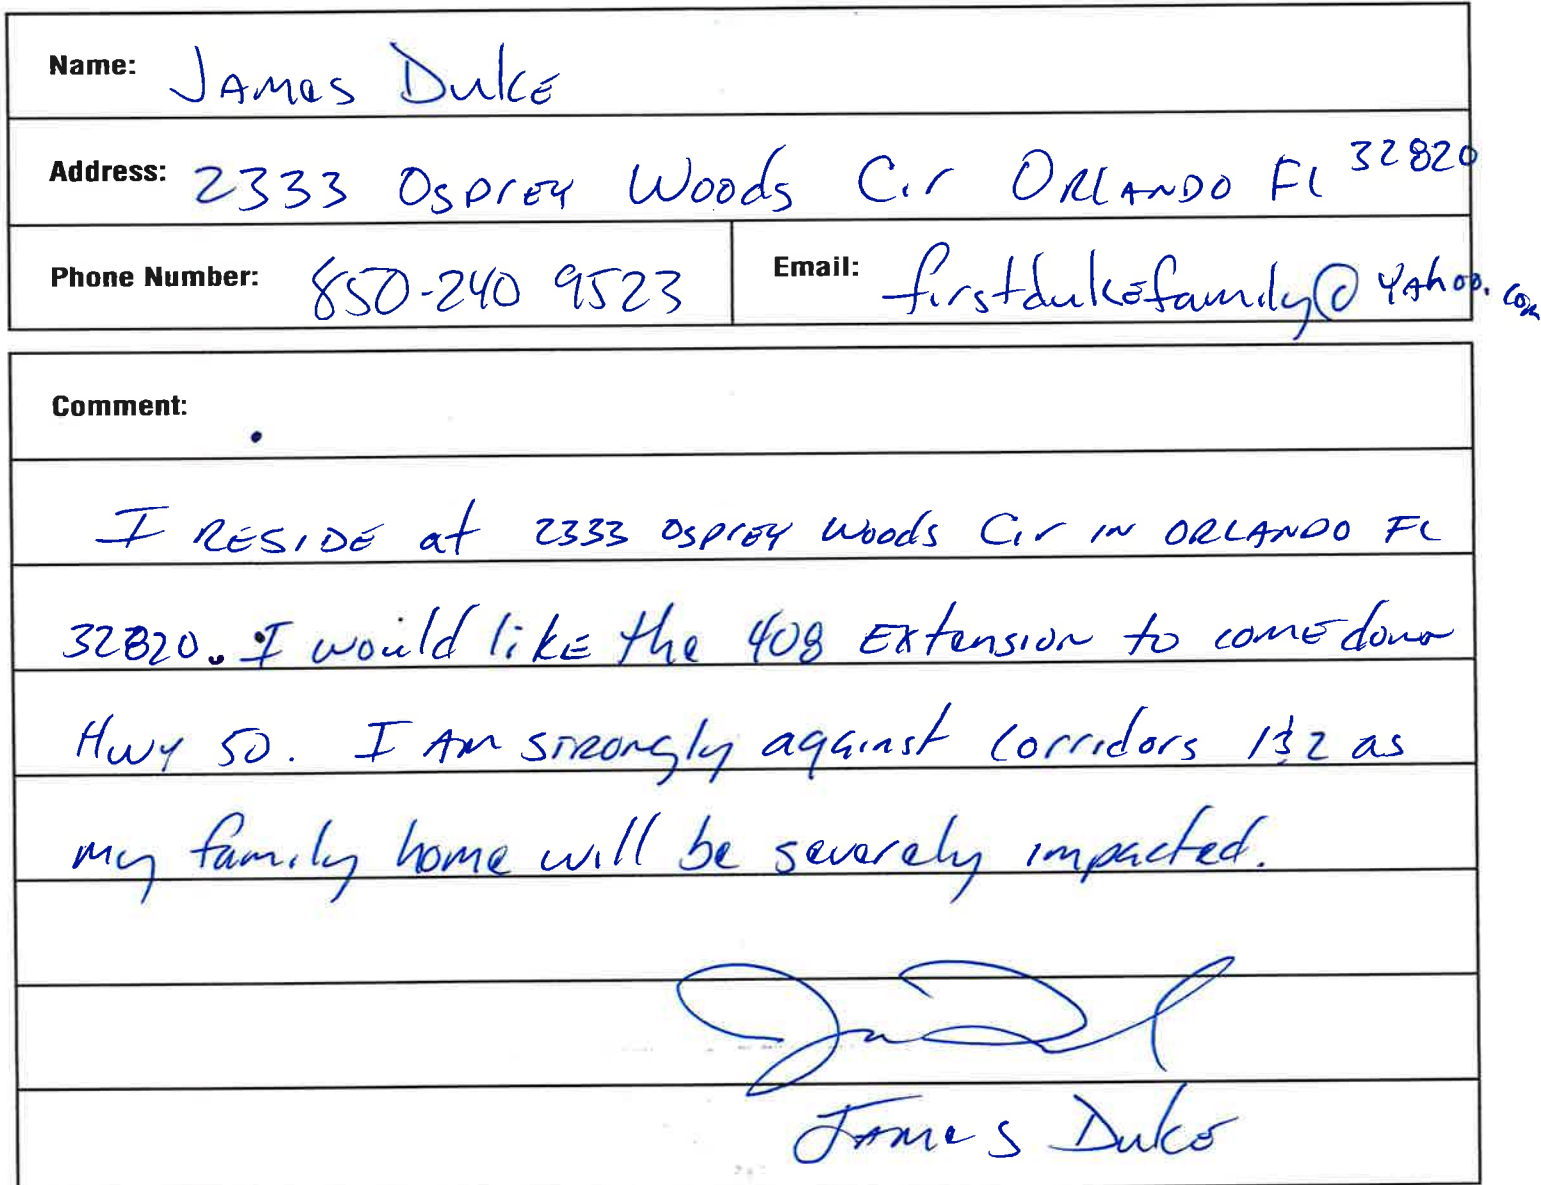 Name: James Duke
Address: 2333 Osprey Woods Cir Orlando FL 32820
Phone Number: 850-240 9523 Email: firstdukefamily@yahoo.com
Comment:
I RESIDE at 2333 Osprey Woods Cir IN ORLANDO FL
32820. I would like the 408 Extension to come down
Hwy 50. I AM strongly against corridors 1&2 as
my family home will be severely impacted.
James Duke